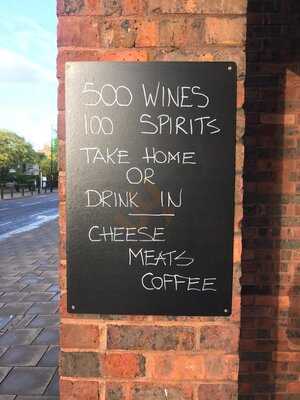 500 WINES
100 SPIRITS
TAKE HOME
OR
DRINK IN
CHEESE
MEATS
COFFEE